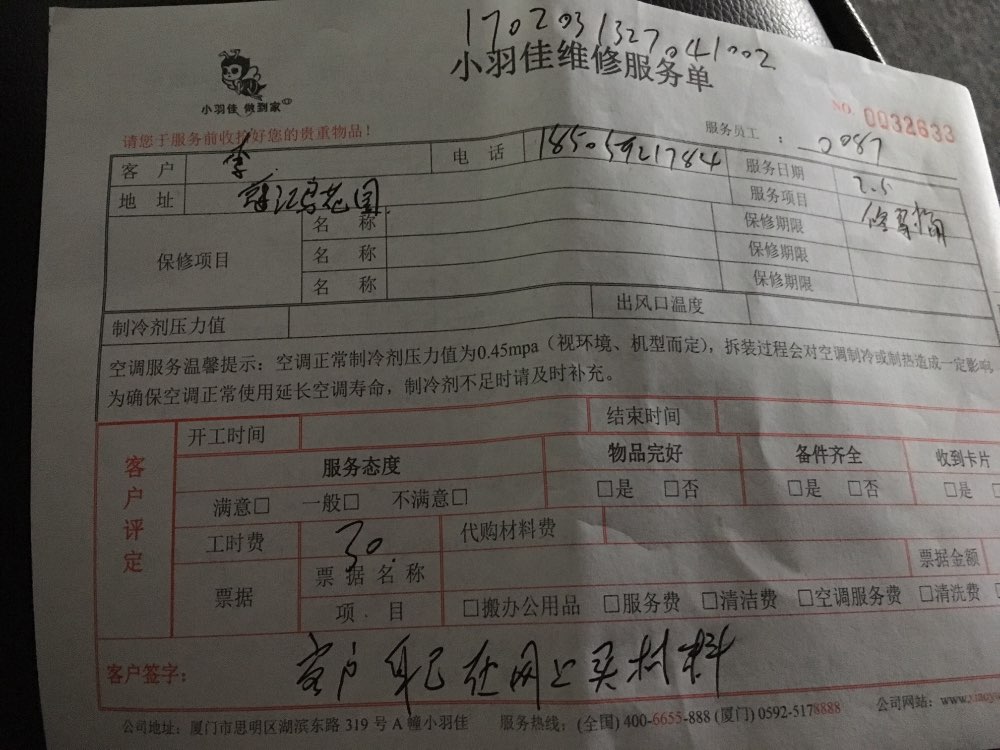 1702031327041002
小羽佳维修服务单
小羽佳 做到家
NO. 0032633
请您于服务前收拾好您的贵重物品！
服务员工 ： 0087
客 户 李 电 话 18505921784 服务日期 2.5
地 址 江 花园 服务项目 修马桶
保修项目 名 称 保修期限
名 称 保修期限
名 称 保修期限
制冷剂压力值 出风口温度
空调服务温馨提示：空调正常制冷剂压力值为0.45mpa（视环境、机型而定），拆装过程会对空调制冷或制热造成一定影响，
为确保空调正常使用延长空调寿命，制冷剂不足时请及时补充。
客户评定
开工时间 结束时间
服务态度 物品完好 备件齐全 收到卡片
满意□ 一般□ 不满意□ □是 □否 □是 □否 □是
工时费 30. 代购材料费
票据 票据名称 票据金额
项 . 目 □搬办公用品 □服务费 □清洁费 □空调服务费 □清洗费
客户签字： 客户自己在网上买材料
公司地址：厦门市思明区湖滨东路 319 号 A 幢小羽佳 服务热线：(全国) 400-6655-888 (厦门) 0592-5178888 公司网站：www.